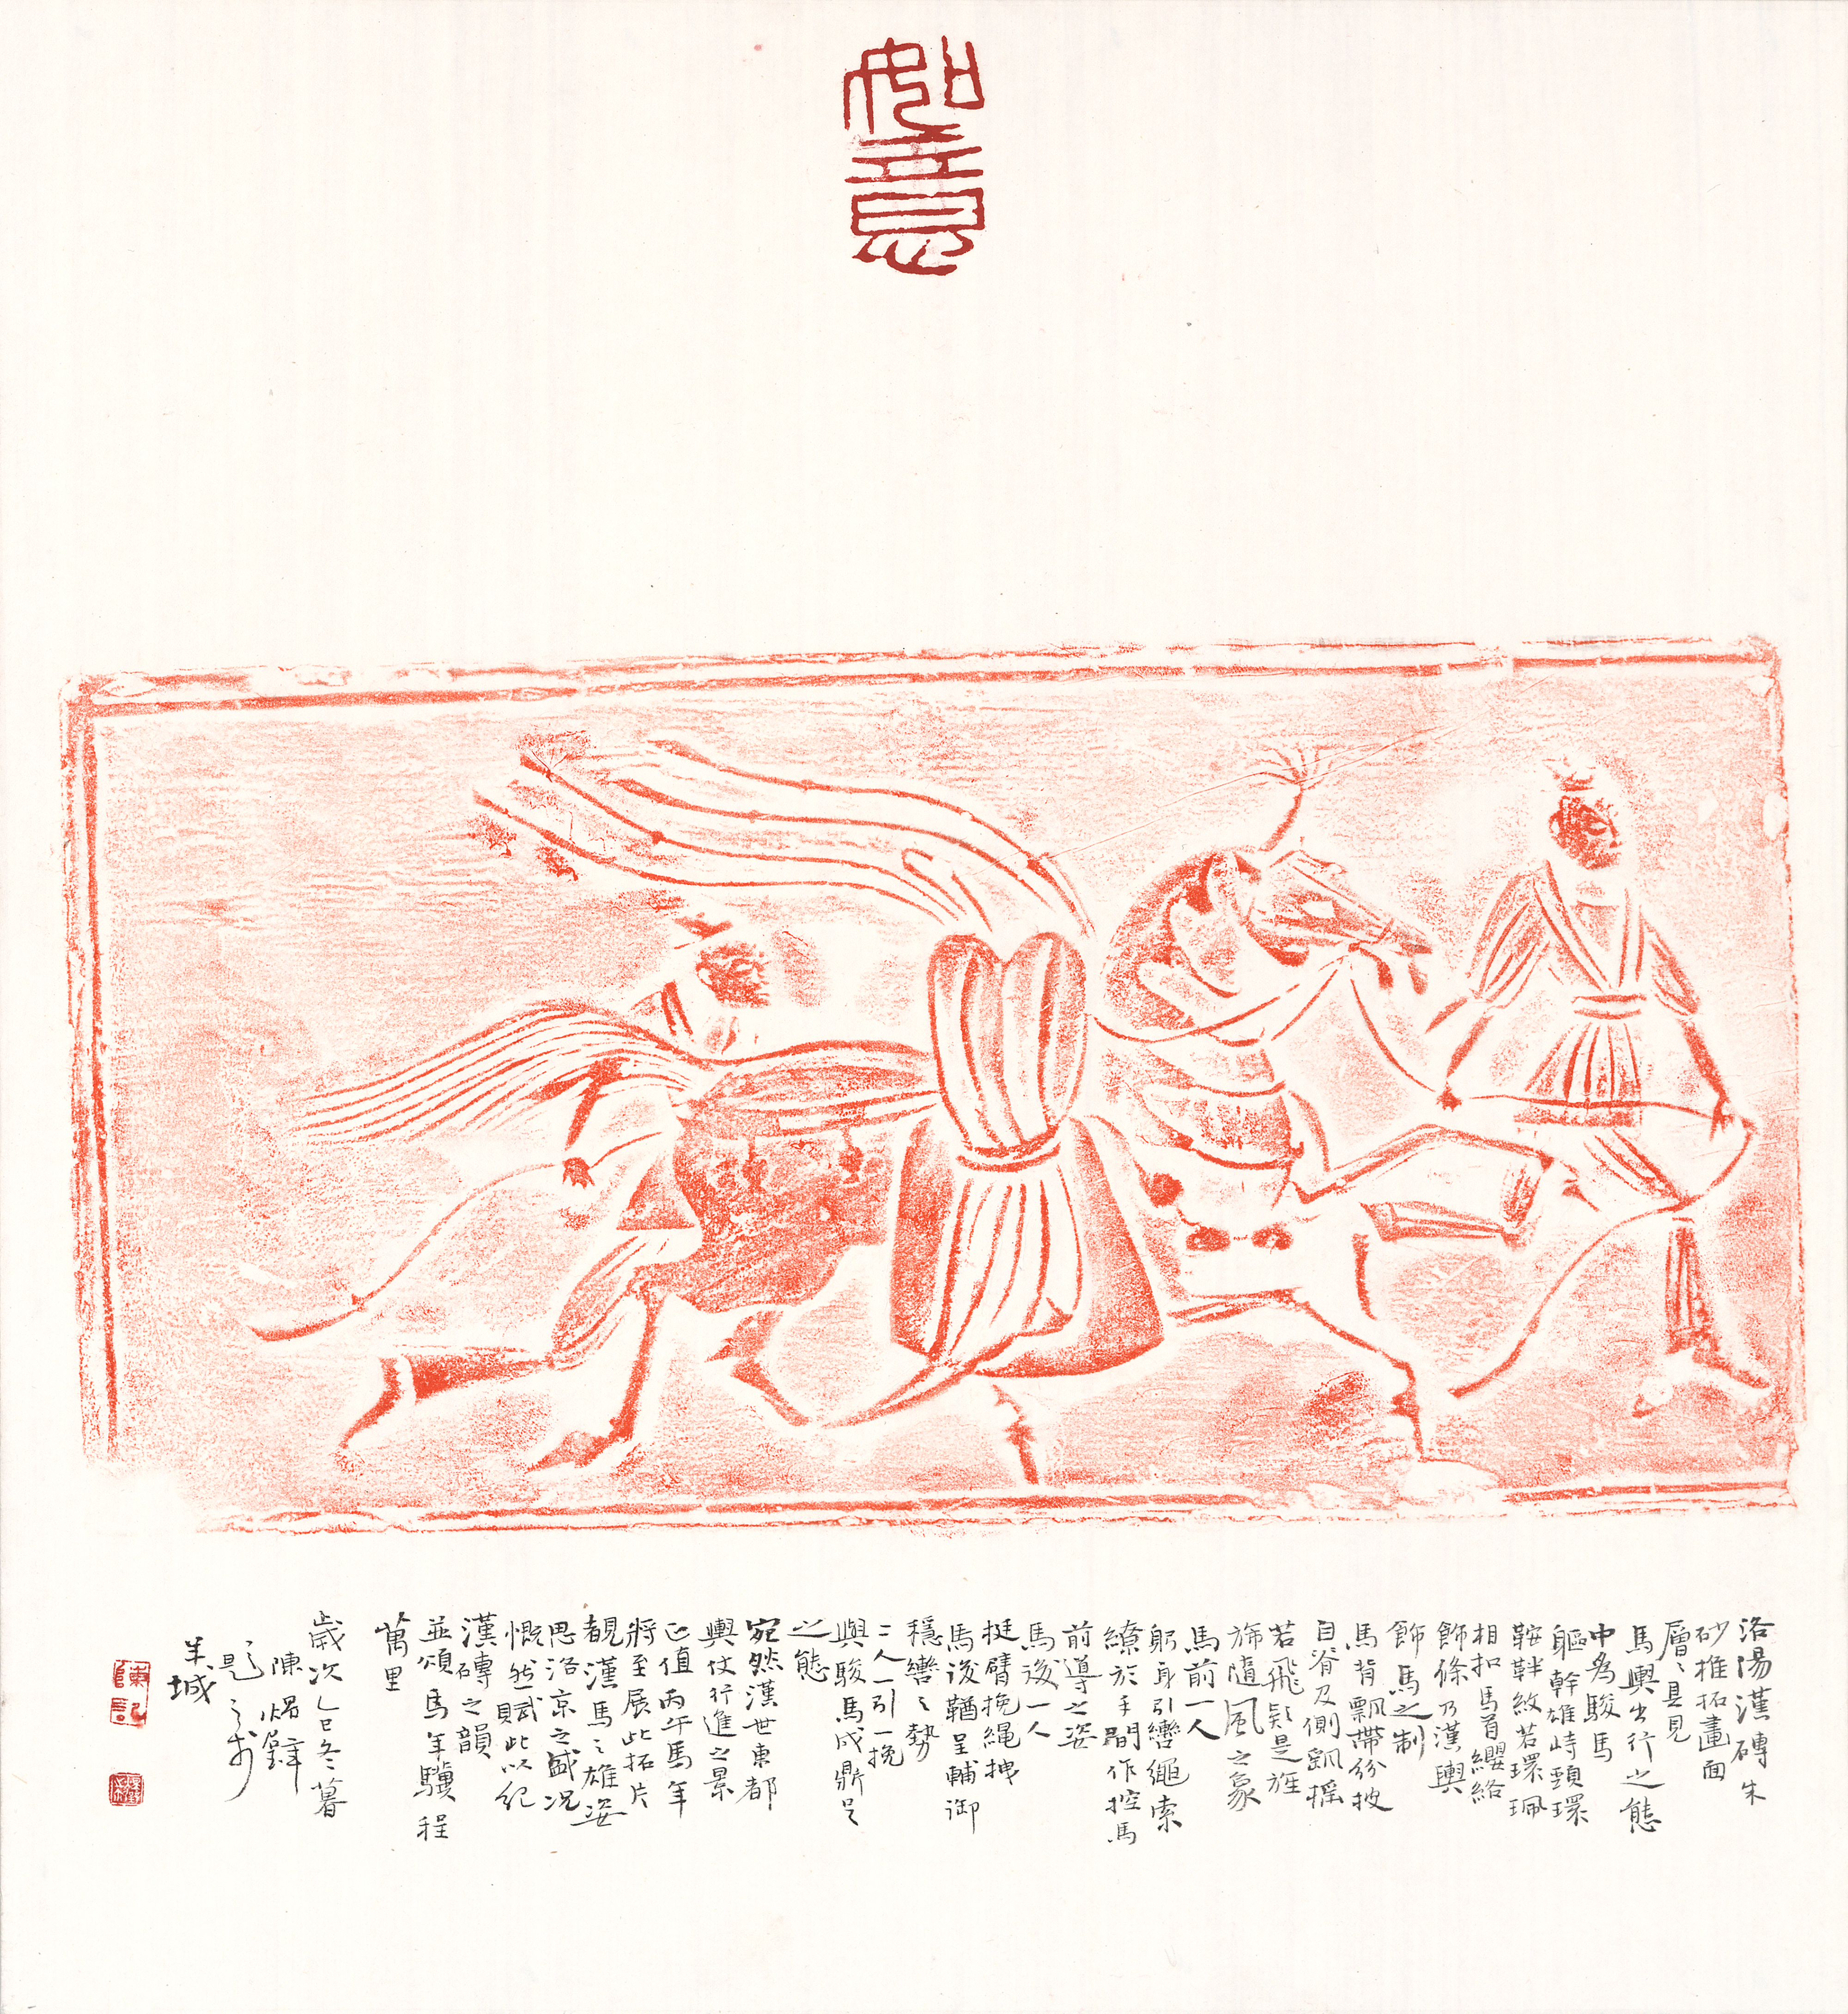 如意
洛陽漢磚朱
砂推拓畫面
層〻具見
馬輿出行之態
中為駿馬
軀幹雄峙頸環
鞍韉紋若環珮
相扣馬首纓絡
飾條乃漢輿
飾馬之制
馬背飄帶紛披
自脊及側飄搖
若飛疑是旌
旆隨風之象
馬前一人
躬身引轡繩索
繚於手間作控馬
前導之姿
馬後一人
挺臂挽繩拽
馬後鞧呈輔御
穩轡之勢
二人一引一挽
與駿馬成鼎足
之態
宛然漢世東都
輿仗行進之景
正值丙午馬年
將至展此拓片
覩漢馬之雄姿
思洛京之盛况
慨然賦此以紀
漢磚之韻
並頌馬年驥程
萬里
歲次乙巳冬暮
陳
題之於
羊城
陳